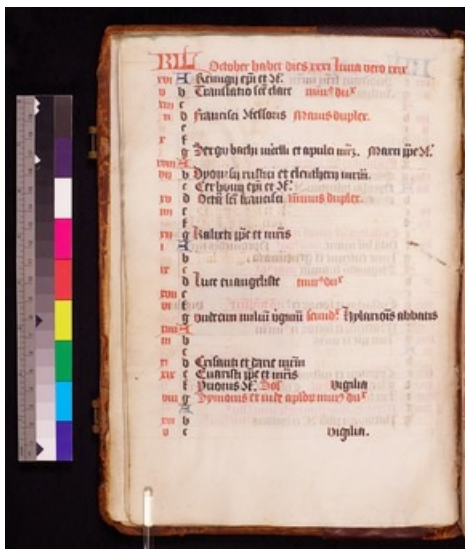 KL October habet dies xxxi luna vero xxix
xvi A Remigii epi et 9f.
v b Translatio sce clare minus dux
xiii c
ii d Francisci 9fessoris Maius duplex.
e
x f
g Sergii bachi marcelli et apulei mr. Marci ppe 9f.
xviii A
vii b Dyonisii rustici et eleutherii mrm.
c Cerbonii epi et 9f.
xv d Octa sci francisci minus duplex.
iiii e
f
xii g Kalixti ppe et mris
i A
b
ix c
d Luce evangeliste minus dux
xvii e
vi f
g undecim milium virginum Hylarionis abbatis
xiiii A
iii b
c
xi d Crisanti et darie mrm
xix e Evaristi ppe et mris
f Vigilia
viii g Symonis et iude aplorum minus dux
A
xvi b
v c Vigilia.